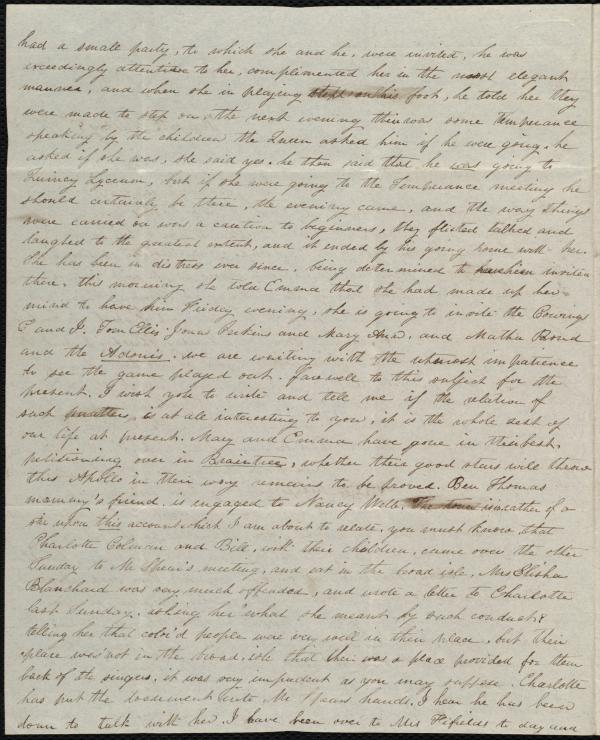 had a small party, to which she and he, were invited, he was
exceedingly attentive to her, complimented her in the most elegant
manner, and when she in playing foot, he told her they
were made to step on, the next evening their was some temperance
speaking by the children the Queen asked him if he were going. he
asked if she was, she said yes. he then said that he was going to
Quincy Lyceum, but if she were going to the Temperance meeting he
should certainly be there, the evening came, and the way things
were carried on was a caution to beginners, they flirted talked and
laughed to the greatest extent, and it ended by his going home with her.
She has been in distress ever since, being determined to have him invited
there. this morning she told Emma that she had made up her
mind to have him Friday evening, she is going to invite the Cowings
E and I. Tom Ellis Jonas Perkins and Mary Ann. and Martha Bond
and the Adonis. we are waiting with the utmost impatience
to see the game played out. farewell to this subject for the
present. I wish you to write and tell me if the relation of
such matters, is at all interesting to you, it is the whole zest of
our life at present. Mary and Emma have gone in their best,
petitioning over in Braintree, whether their good stars will throw
this Apollo in their way remains to be proved. Ben Thomas
mammy's friend. is engaged to Nancy Wells. The town is in rather of a
stir upon this account which I am about to relate, you must know that
Charlotte Colman and Bill, with their children, came over the other
Sunday to Mr Spear's meeting, and sat in the broad isle, Mrs Elisha
Blanchard was very much offended, and wrote a letter to Charlotte
last Sunday. asking her what she meant by such conduct,
telling her that color'd people were very well in their place, but their
place was not in the broad isle that their was a place provided for them
back of the singers, it was very impudent as you may suppose. Charlotte
has put the document into Mr Spears hands. I hear he has been
down to talk with her. I have been over to Mrs Fifields to day and